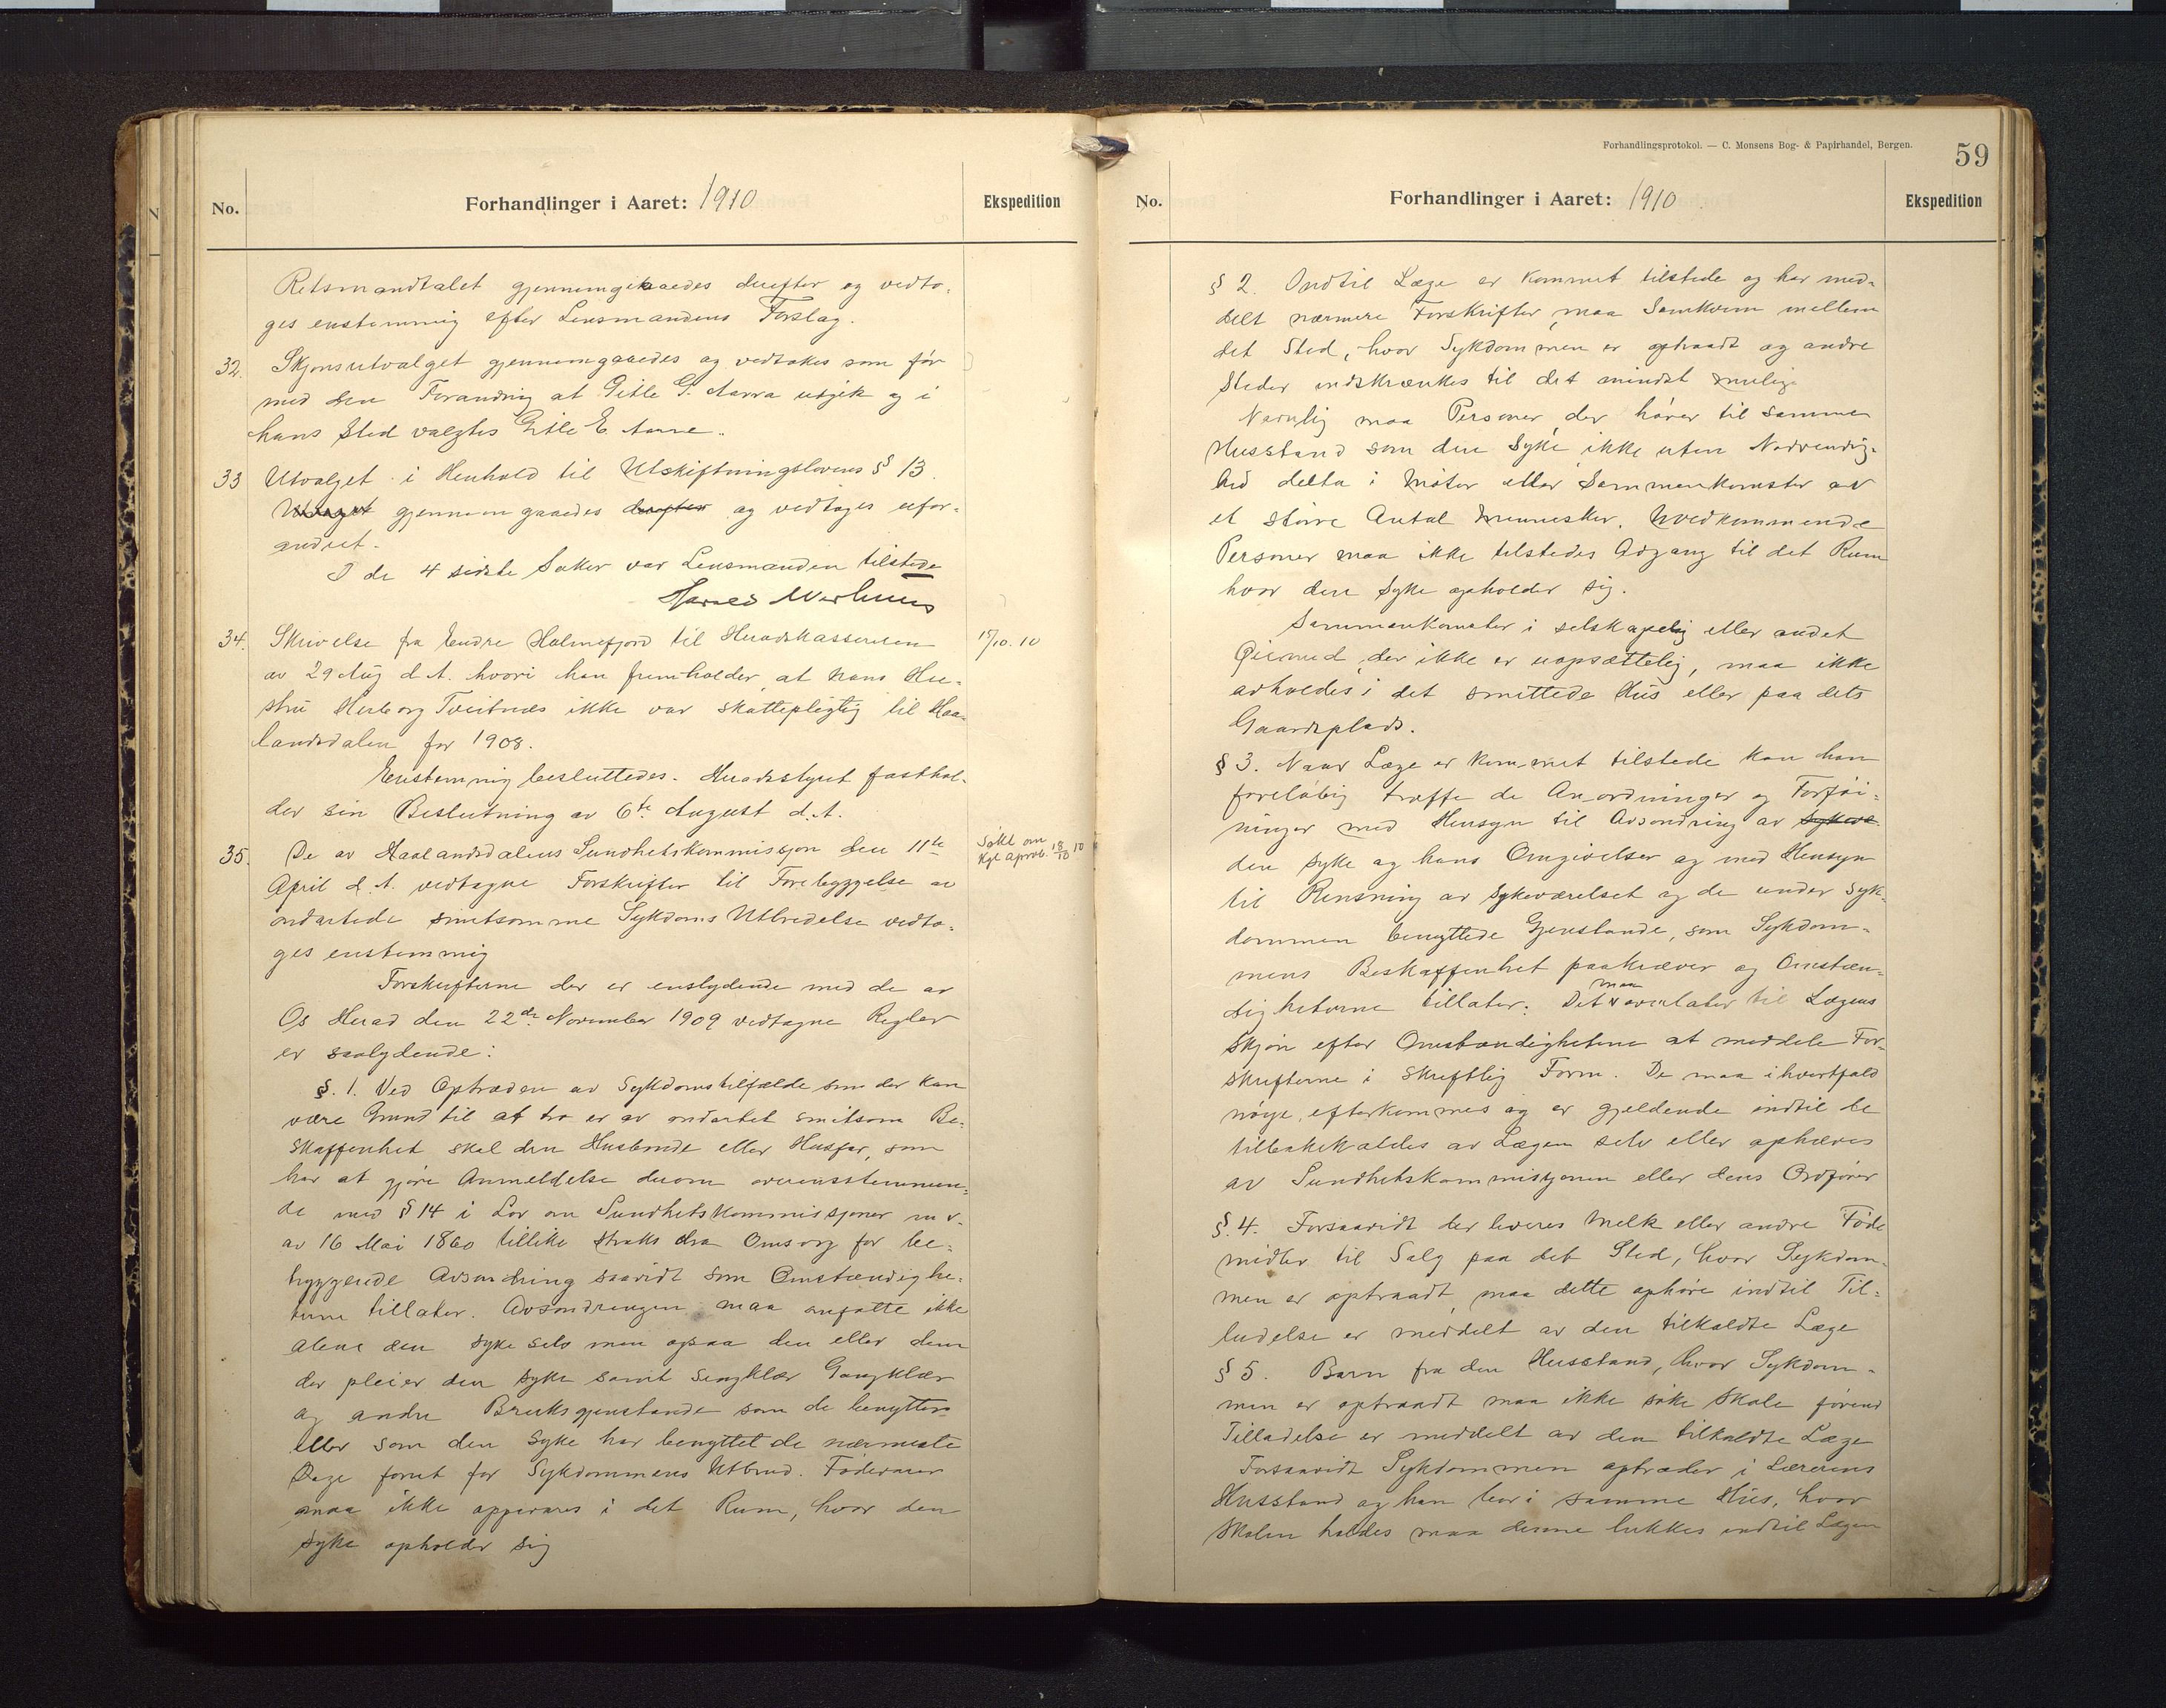 No.
Forhandlinger i Aaret: 1910
Ekspedition
Retsmandtalet gjennemgikaaedes derefter og vedto-
ges enstemmig efter Lensmandens Forslag.
32. Skjønsutvalget gjennemgaaedes og vedtokes som før
med den Forandring at Gitle G. Aarra utgik og i
hans Sted valgtes Gitle E. Aarre.
33 Utvalget i Henhold til Utskiftningslovens § 13
gjennemgaaedes derefter og vedtoges ufor-
andret.
I de 4 sidste Saker var Lensmanden tilstede
34. Skrivelse fra Endre Holmefjord til Heradskassereren
av 29 Aug d.A. hvori han fremholder, at hans Hu-
stru Herborg Tveitnæs ikke var skattepligtig til Haa-
landsdalen for 1908.
Enstemmig besluttedes. Heradsstyret fasthol-
der sin Beslutning av 6te August d.A.
15/10. 10
35. De av Haalandsdalens Sundhetskommissjon den 11te
April d.A. vedtagne Forskrifter til Forebyggelse av
ondartede smitsomme Sykdoms Utbredelse vedto-
ges enstemmig
Søkt om
Kgl aprob. 18/10 10
Forskrifterne der er enslydende med de av
Os Herad den 22de November 1909 vedtagne Regler
er saalydende:
§. 1. Ved Optræden av Sykdomstilfælde som der kan
være Grund til at tro er av ondartet smitsom Be-
skaffenhet skal den Husbonde eller Husfar, som
har at gjøre Anmeldelse derom overensstemmen-
de med § 14 i Lov om Sundhetskommissjoner m.v.
av 16 Mai 1860 tillike straks dra Omsorg for be-
tryggende Avsondring saavidt som Omstændighe-
terne tillater. Avsondringen maa omfatte ikke
alene den syke selv men ogsaa den eller dem
der pleier den syke samt Sengklær Gangklær
og andre Bruksgjenstande som de benytter
eller som den syke har benyttet de nærmeste
Dage forut for Sykdommens Utbrud. Fødevarer
maa ikke opbevares i det Rum, hvor den
syke opholder sig
Forhandlingsprotokol. — C. Monsens Bog- & Papirhandel, Bergen.
59
No.
Forhandlinger i Aaret: 1910
Ekspedition
§ 2. Indtil Læge er kommet tilstede og har med-
delt nærmere Forskrifter, maa Samkvem mellem
det Sted, hvor Sykdommen er optraadt og andre
Steder indskrænkes til det mindst mulige
Navnlig maa Personer, der hører til samme
Husstand som den Syke ikke uten Nødvendig-
hed delta i Møter eller Sammenkomster av
et større Antal Mennesker. Uvedkommende
Personer maa ikke tilstedes Adgang til det Rum
hvor den syke opholder sig.
Sammenkomster i selskapelig eller andet
Øiemed, der ikke er uopsættelig, maa ikke
avholdes i det smittede Hus eller paa dets
Gaardsplads.
§ 3. Naar Læge er kommet tilstede kan han
foreløbig træffe de Anordninger og Forføi-
ninger med Hensyn til Avsondring av
den syke og hans Omgivelser og med Hensyn
til Rensning av Sykeværelset og de under Syk-
dommen benyttede Gjenstande, som Sykdom-
mens Beskaffenhet paakræver og Omstæn-
digheterne tillater. Det maa overlates til Lægens
Skjøn efter Omstændighetene at meddele For-
skrifterne i skriftlig Form. De maa i hvertfald
nøye efterkommes og er gjeldende indtil de
tilbakekaldes av Lægen selv eller ophæves
av Sundhetskommissjonen eller dens Ordfører
§. 4. Forsaavidt der leveres Melk eller andre Føde
midler til Salg paa det Sted, hvor Sykdom-
men er optraadt, maa dette ophøre indtil Til-
ladelse er meddelt av den tilkaldte Læge
§ 5. Barn fra den Husstand, hvor Sykdom-
men er optraadt maa ikke søke Skole førend
Tilladelse er meddelt av den tilkaldte Læge
Forsaavidt Sykdommen optræder i Lærerens
Husstand og han bor i samme Hus, hvor
Skolen holdes maa denne lukkes indtil Lægen